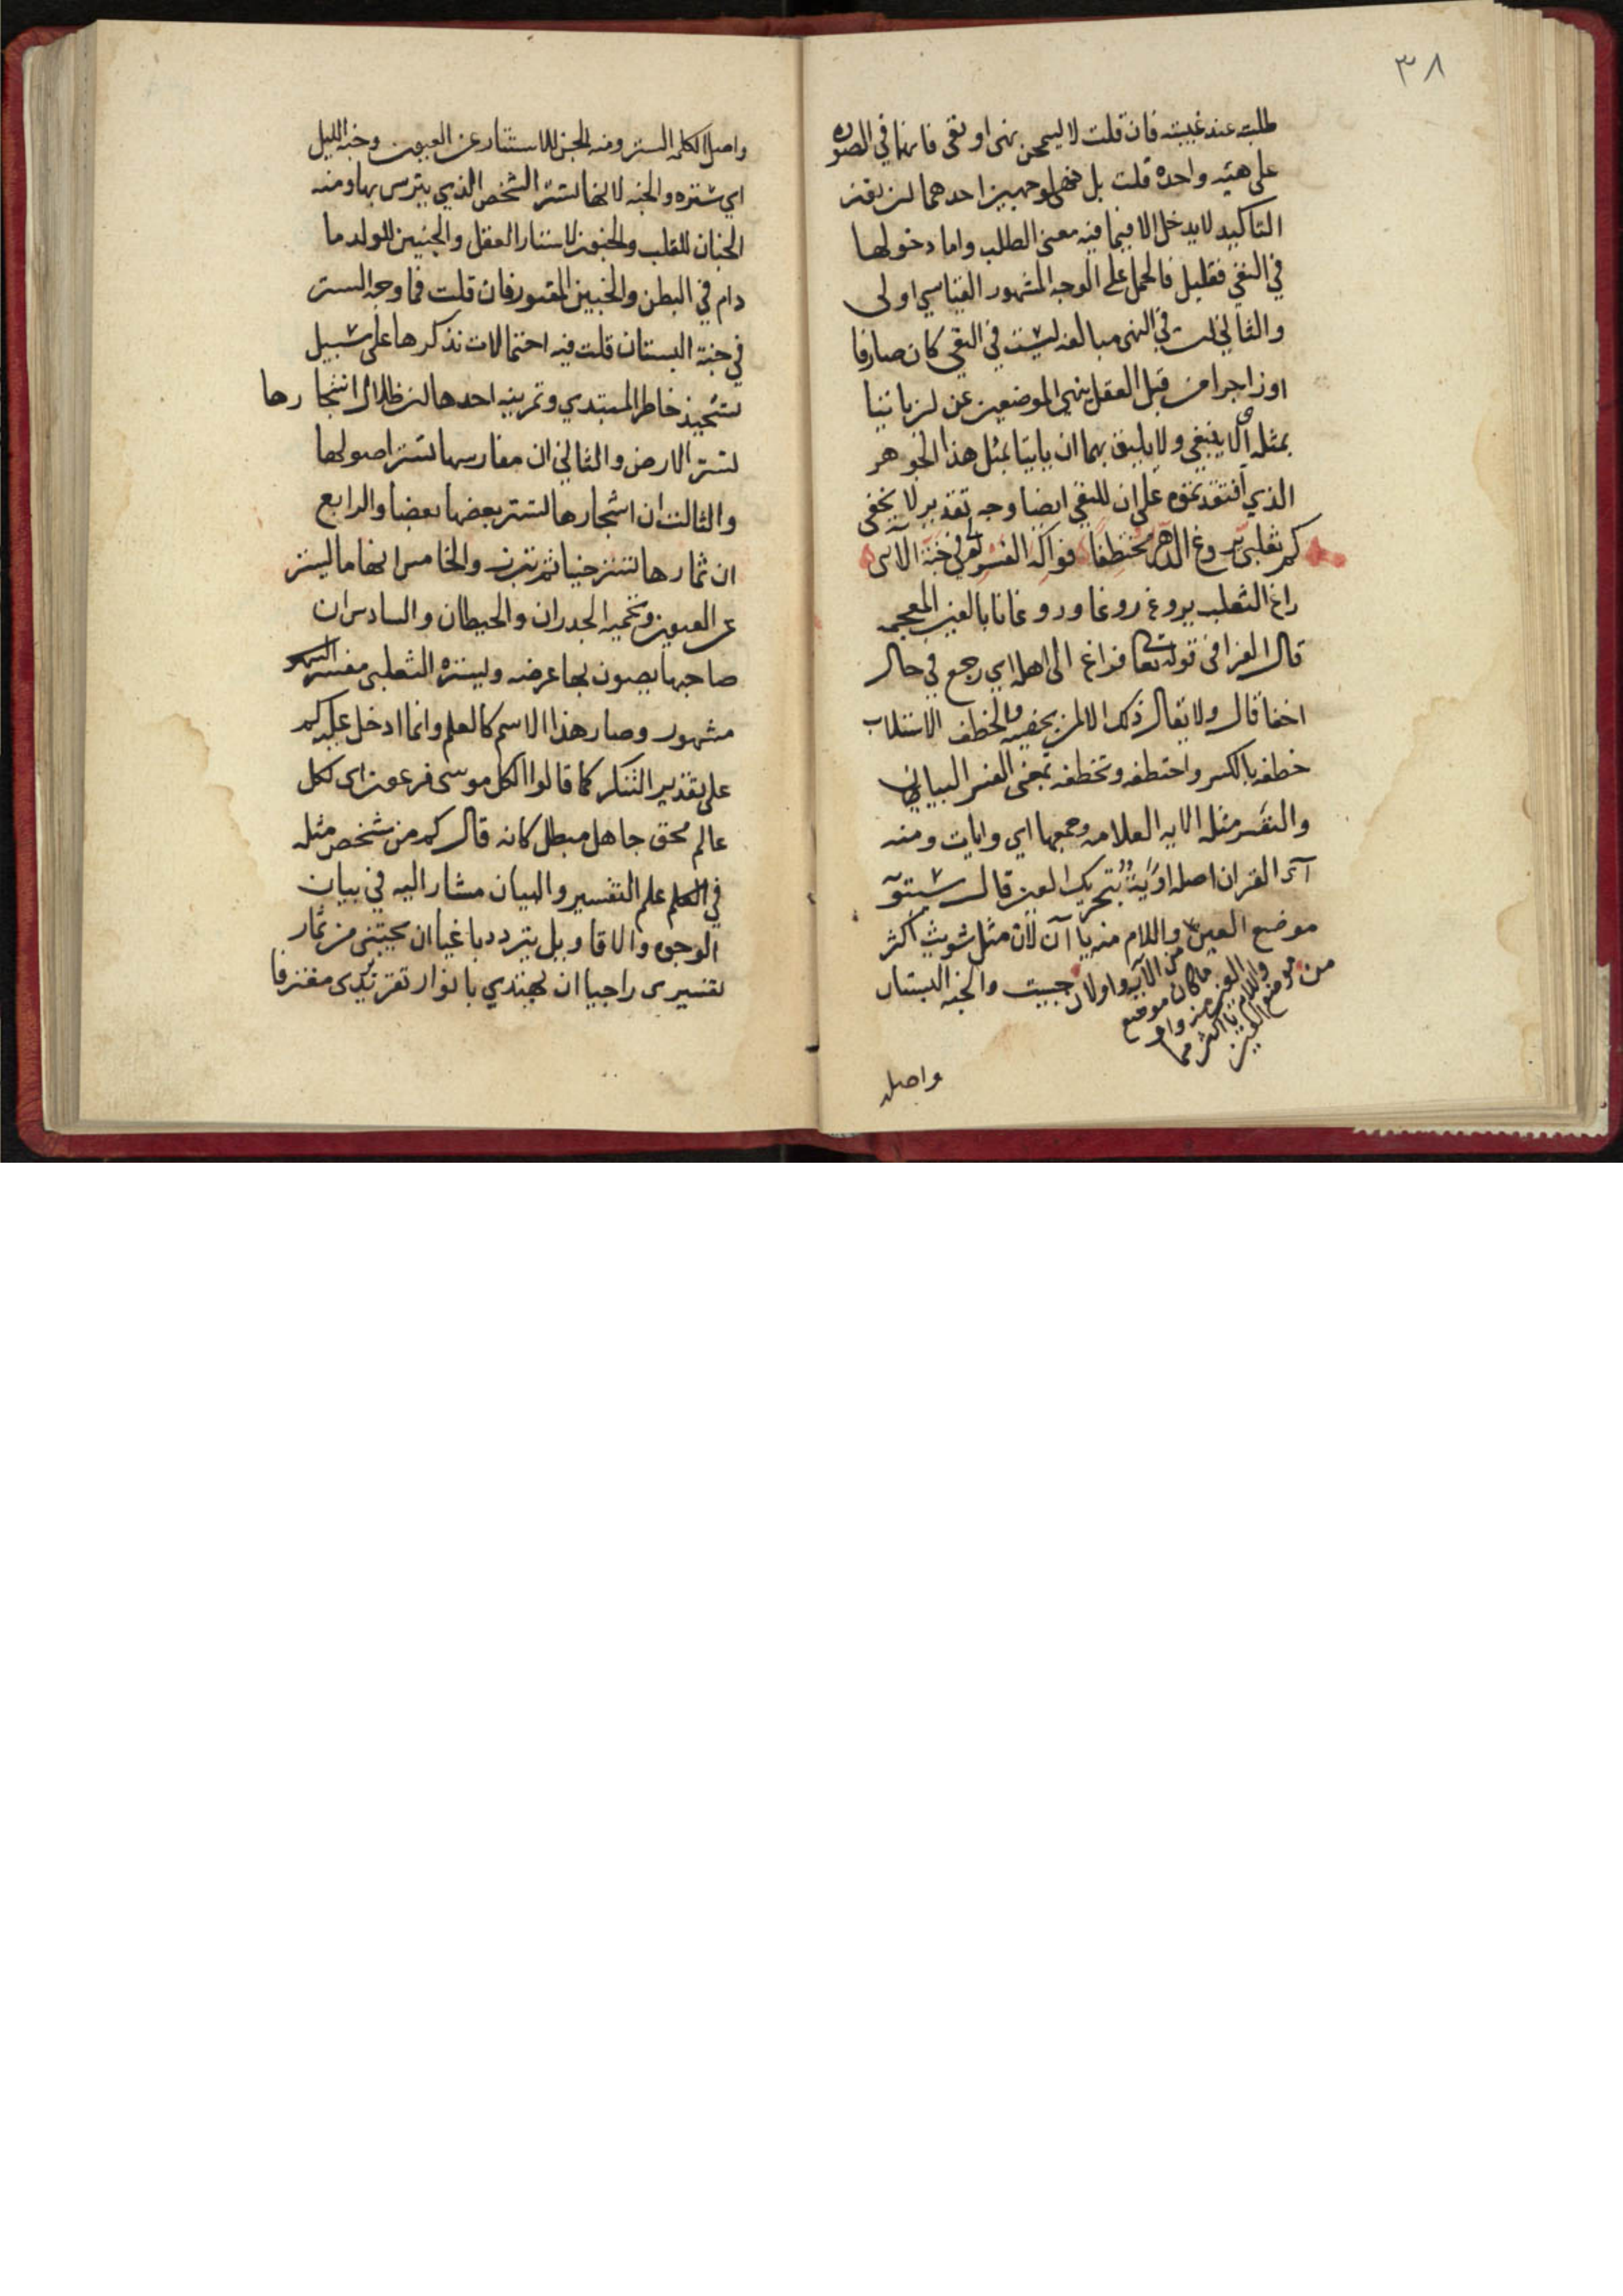 ٣٨
طلبته عند غيبته فان قلت لا ليمحن نهى او نفى فانهما في الصوره
على هيئه واحده قلت بل نهى لوجهين احدهما لن نون
التاكيد لا يدخل الا فيما فيه معنى الطلب واما دخولها
في النفي فقليل فالحمل على الوجه المشهور القياسي اولى
والثاني ان في النهى مبالغه ليست في النفى كان صارفا
او زاجرا من قبل العقل ينهى الموضعين عن لن ياتيا
بمثله اى لا ينبغي ولا يليق بهما ان ياتيا بمثل هذا الجوهر
الذي افتقد نموه على ان للنفي ايضا وجه تقدير لا يخفى
كم ثعلبى يروغ الدهر مختطفا فواكه الفسر في جنة الآى
راغ الثعلب يروغ روغا وروغانا بالغين المعجمه
قال الفرا فى قوله تعا فراغ الى اهله اي رجع في حال
اخفا قال ولا يقال ذلك الا لمن يخفيه والخطف الاستلاب
خطفه بالكسر واختطفه وتخطفه بمعنى الفسر البيان
والتفسر مثله الايه العلامه وجمعها اي وايات ومنه
آى القران اصله اوَيَة بتحريك العين قال سيبويه
موضع العين من الآية واو لان ما كان موضع
العين منه واو واللام يا اكثر مما
موضع العين واللام منه يا آن لان مثل شويت اكثر
من جييت والجنه البستان
واصل
واصل الكلمه الستر ومنه الجن للاستتار عن العيون وجنه الليل
اي ستره والجنه لانها تستر الشخص الذي يترس بها ومنه
الجنان للقلب والجنون لاستتار العقل والجنين للولد ما
دام في البطن والجنين المقبور فان قلت فما وجه الستر
في جنة البستان قلت فيه احتمالات نذكرها على سبيل
تشحيذ خاطر المبتدي وتمرينه احدها لن ظلال اشجارها
تستر الارض والثاني ان مغارسها تستر اصولها
والثالث ان اشجارها تستر بعضها بعضا والرابع
ان ثمارها تستر حينا ثم تبرز والخامس انها ما ليستر
عن العيون وتحميه الجدران والحيطان والسادس ان
صاحبها يصون بها عرضه وليستره الثعلبى مفسر
مشهور وصار هذا الاسم كالعلم وانما ادخل عليه كم
على تقدير التنكر كما قالوا لكل موسى فرعون اى لكل
عالم محق جاهل مبطل كانه قال كم من شخص مثله
في العلم علم التفسير والبيان مشار اليه في بيان
الوجوه والاقاويل يتردد باغيا ان يجتنى من ثمار
تفسيرى راجيا ان يهتدي بانوار تقريرى مغترفا